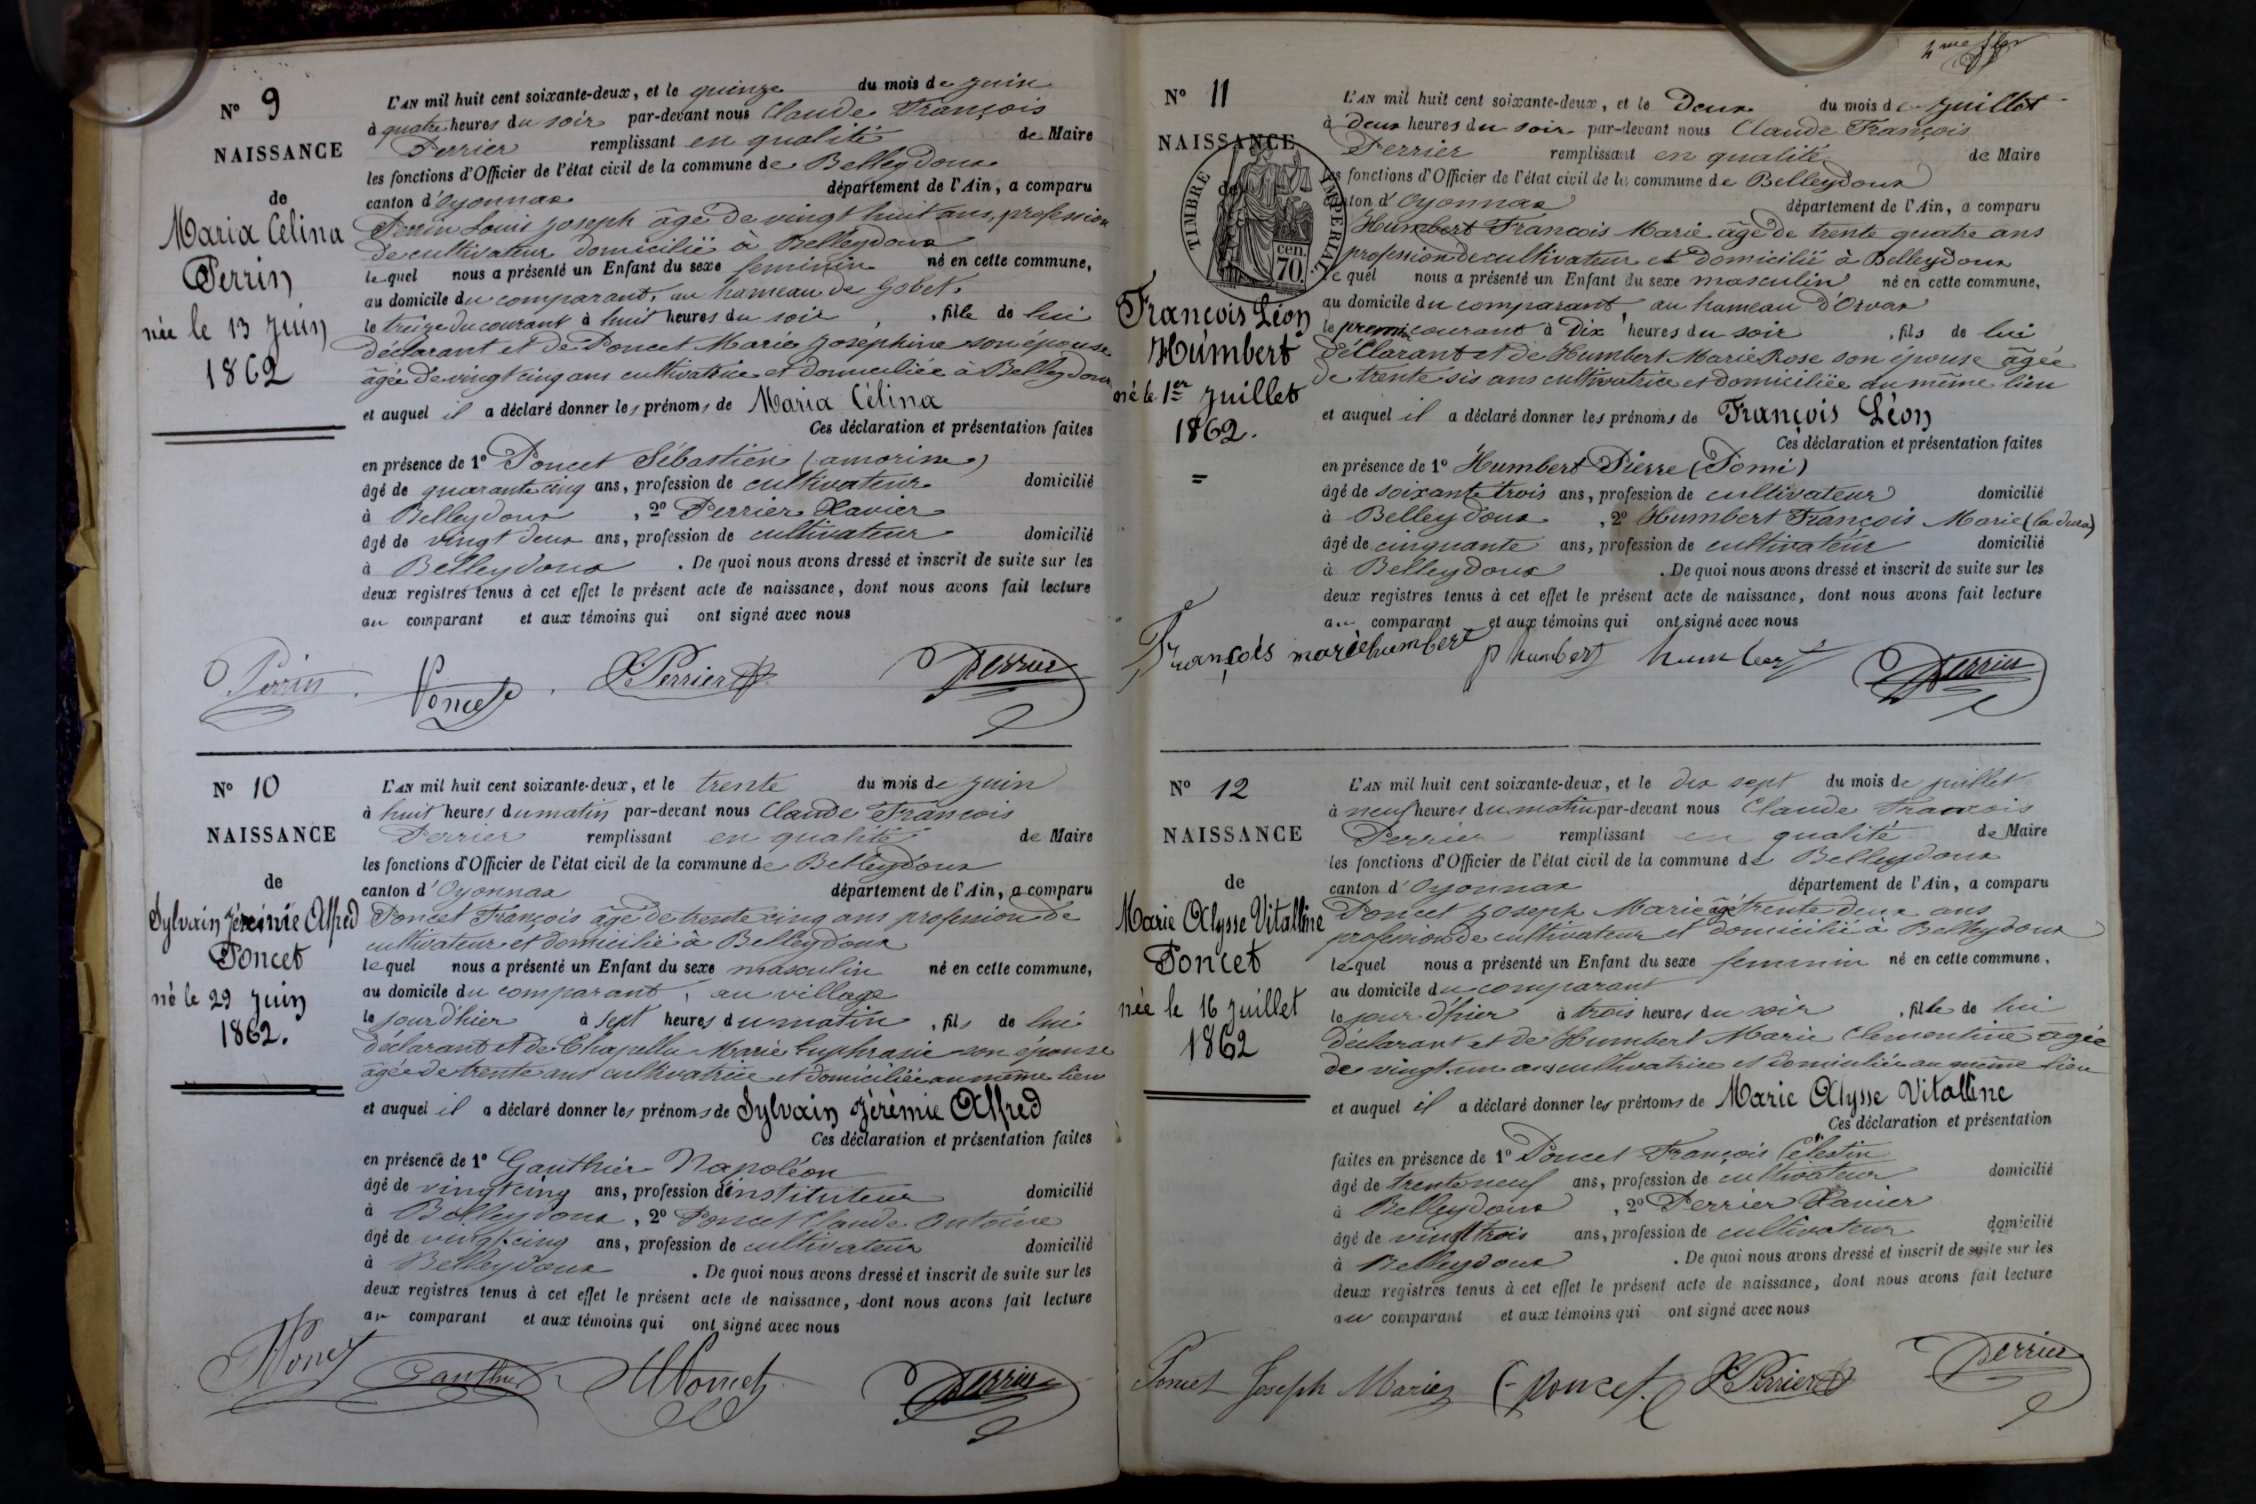 N° 9
NAISSANCE
de
Maria Célina
Perrin
née le 13 Juin
1862
L'AN mil huit cent soixante-deux, et le quinze du mois de Juin
à quatre heures du soir par-devant nous Claude François
Perrier remplissant en qualité de Maire
les fonctions d'Officier de l'état civil de la commune de Belleydoux
canton d'Oyonnax département de l'Ain, a comparu
Perrin Louis Joseph âgé de vingt huit ans, profession
de cultivateur domicilié à Belleydoux
lequel nous a présenté un Enfant du sexe feminin né en cette commune,
au domicile du comparant, au hameau de Gobet,
le treize du courant à huit heures du soir, fille de lui
déclarant et de Poncet Marie Josephine son épouse
âgée de vingt cinq ans cultivatrice et domiciliée à Belleydoux
et auquel il a déclaré donner les prénoms de Maria Célina
Ces déclaration et présentation faites
en présence de 1° Poncet Sébastien (amorine)
âgé de quarante cinq ans, profession de cultivateur domicilié
à Belleydoux, 2° Perrier Xavier
âgé de vingt deux ans, profession de cultivateur domicilié
à Belleydoux. De quoi nous avons dressé et inscrit de suite sur les
deux registres tenus à cet effet le présent acte de naissance, dont nous avons fait lecture
au comparant et aux témoins qui ont signé avec nous
Perrin Poncet X Perrier Perrier
N° 10
NAISSANCE
de
Sylvain Jérémie Alfred
Poncet
né le 29 Juin
1862.
L'AN mil huit cent soixante-deux, et le trente du mois de Juin
à huit heures du matin par-devant nous Claude François
Perrier remplissant en qualité de Maire
les fonctions d'Officier de l'état civil de la commune de Belleydoux
canton d'Oyonnax département de l'Ain, a comparu
Poncet François âgé de trente cinq ans profession de
cultivateur et domicilié à Belleydoux
lequel nous a présenté un Enfant du sexe masculin né en cette commune,
au domicile du comparant, au village
le jour d'hier à sept heures du matin, fils de lui
déclarant et de Chapellu Marie Euphrasie son épouse
âgée de trente ans cultivatrice et domiciliée au même lieu
et auquel il a déclaré donner les prénoms de Sylvain Jérémie Alfred
Ces déclaration et présentation faites
en présence de 1° Gauthier Napoléon
âgé de vingt cinq ans, profession d'instituteur domicilié
à Belleydoux, 2° Poncet Claude Antoine
âgé de vingt cinq ans, profession de cultivateur domicilié
à Belleydoux. De quoi nous avons dressé et inscrit de suite sur les
deux registres tenus à cet effet le présent acte de naissance, dont nous avons fait lecture
au comparant et aux témoins qui ont signé avec nous
Poncet Gauthier Poncet Perrier
2me f.er
N° 11
NAISSANCE
de
TIMBRE IMPERIAL
70 cen.
François Léon
Humbert
né le 1er Juillet
1862.
=
L'AN mil huit cent soixante-deux, et le Deux du mois de Juillet
à Deux heures du soir par-devant nous Claude François
Perrier remplissant en qualité de Maire
les fonctions d'Officier de l'état civil de la commune de Belleydoux
canton d'Oyonnax département de l'Ain, a comparu
Humbert François Marie âgé de trente quatre ans
profession de cultivateur et domicilié à Belleydoux
lequel nous a présenté un Enfant du sexe masculin né en cette commune,
au domicile du comparant, au hameau d'Orvaz
le premier courant à Dix heures du soir, fils de lui
déclarant et de Humbert Marie Rose son épouse âgée
de trente six ans cultivatrice et domiciliée au même lieu
et auquel il a déclaré donner les prénoms de François Léon
Ces déclaration et présentation faites
en présence de 1° Humbert Pierre (Pomi)
âgé de soixante trois ans, profession de cultivateur domicilié
à Belleydoux, 2° Humbert François Marie
âgé de cinquante ans, profession de cultivateur domicilié
à Belleydoux. De quoi nous avons dressé et inscrit de suite sur les
deux registres tenus à cet effet le présent acte de naissance, dont nous avons fait lecture
au comparant et aux témoins qui ont signé avec nous
François marie humbert p humbert humbert Perrier
N° 12
NAISSANCE
de
Marie Alysse Vitalline
Poncet
née le 16 Juillet
1862
L'AN mil huit cent soixante-deux, et le dix sept du mois de juillet
à neuf heures du matin par-devant nous Claude François
Perrier remplissant en qualité de Maire
les fonctions d'Officier de l'état civil de la commune de Belleydoux
canton d'Oyonnax département de l'Ain, a comparu
Poncet Joseph Marie âgé trente deux ans
profession de cultivateur et domicilié à Belleydoux
lequel nous a présenté un Enfant du sexe feminin né en cette commune,
au domicile du comparant
le jour d'hier à trois heures du soir, fille de lui
déclarant et de Humbert Marie Clementine âgée
de vingt un ans cultivatrice et domiciliée au même lieu
et auquel il a déclaré donner les prénoms de Marie Alysse Vitalline
Ces déclaration et présentation
faites en présence de 1° Poncet François Célestin
âgé de trente neuf ans, profession de cultivateur domicilié
à Belleydoux, 2° Perrier Xavier
âgé de vingt trois ans, profession de cultivateur domicilié
à Belleydoux. De quoi nous avons dressé et inscrit de suite sur les
deux registres tenus à cet effet le présent acte de naissance, dont nous avons fait lecture
au comparant et aux témoins qui ont signé avec nous
Poncet Joseph Marie C poncet X Perrier Perrier